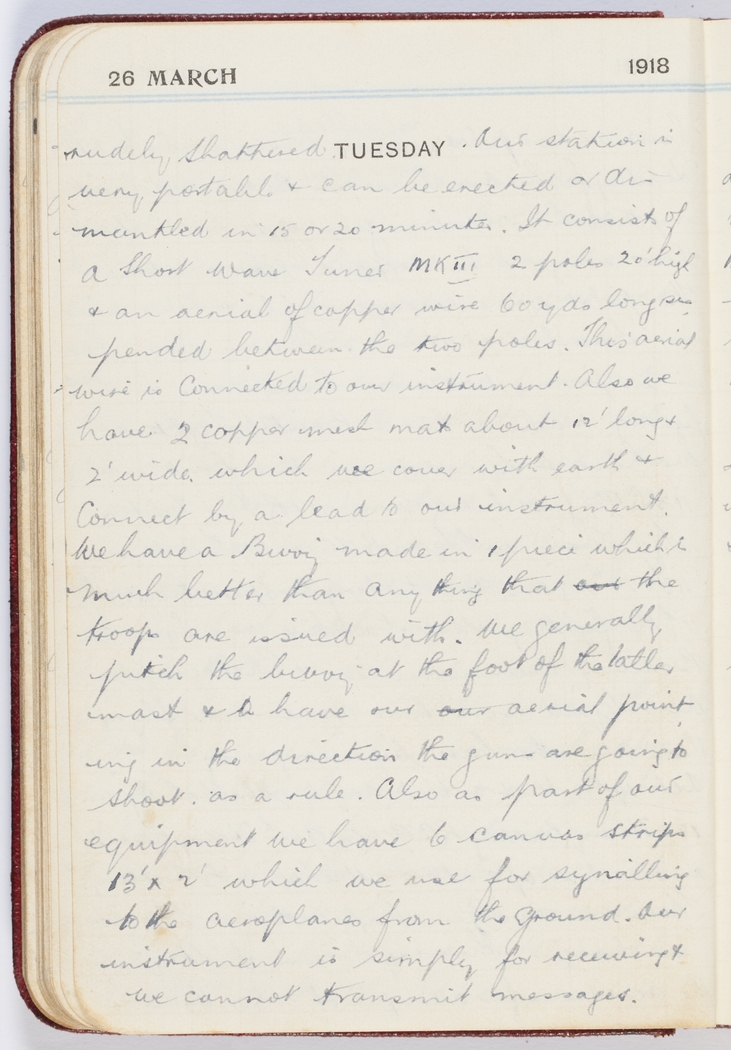 26 MARCH 1918
rudely shattered. TUESDAY. Our station is
very portable & can be erected or dis-
mantled in 15 or 20 minutes. It consists of
a Short Wave Tuner MK III 2 poles 20' high
& an aerial of copper wire 60 yds long sus
pended between the two poles. This aerial
wire is Connected to our instrument. Also we
have 2 copper mesh mats about 12' long &
2' wide. which we cover with earth &
Connect by a lead to our instrument.
We have a Bivvy made in 1 piece which is
much better than any thing that out the
troops are issued with. We generally
pitch the bivvy at the foot of the latter
mast & have our our aerial point
ing in the direction the guns are going to
shoot. as a rule. Also as part of our
equipment we have 6 canvas strips
13' x 2' which we use for synalling
to the aeroplanes from the ground. Our
instrument is simply for receiving &
we cannot transmit messages.